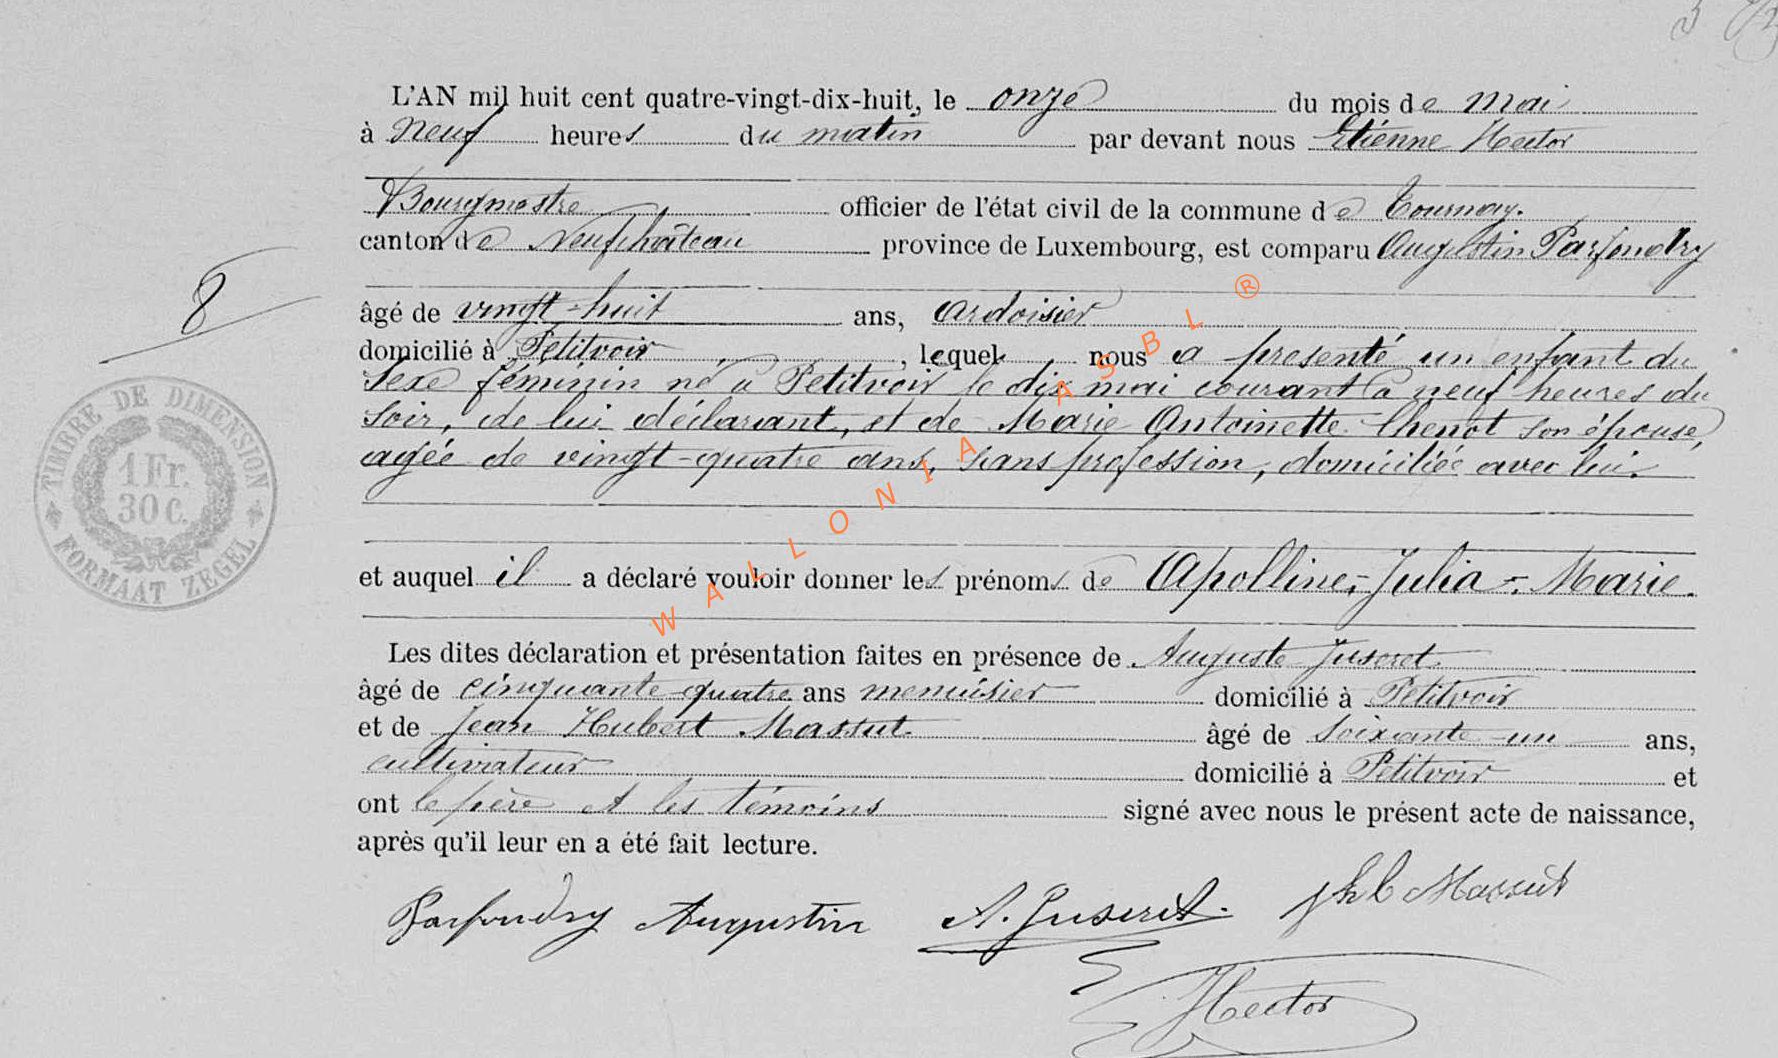 L'AN mil huit cent quatre-vingt-dix-huit, le onze du mois de mai
à neuf heures du matin par devant nous Etienne Hector
Bourgmestre officier de l'état civil de la commune de Tournay.
canton de Neufchâteau province de Luxembourg, est comparu Augustin Parfondry
8
âgé de vingt-huit ans, ardoisier
domicilié à Petitvoir, lequel nous a presenté un enfant du
sexe féminin né à Petitvoir le dix mai courant à neuf heures du
soir, de lui déclarant, et de Marie Antoinette Chenot son épouse,
agée de vingt-quatre ans, sans profession, domiciliée avec lui.
TIMBRE DE DIMENSION
1 Fr.
30 C.
FORMAAT ZEGEL
et auquel il a déclaré vouloir donner les prénoms de Apolline-Julia-Marie.
Les dites déclaration et présentation faites en présence de Auguste Juseret
âgé de cinquante quatre ans menuisier domicilié à Petitvoir
et de Jean Hubert Massut âgé de soixante-un ans,
cultivateur domicilié à Petitvoir et
ont le père et les témoins signé avec nous le présent acte de naissance,
après qu'il leur en a été fait lecture.
Parfondry Augustin A. Juseret. Massut
Hector
WALLONIA ASBL ®